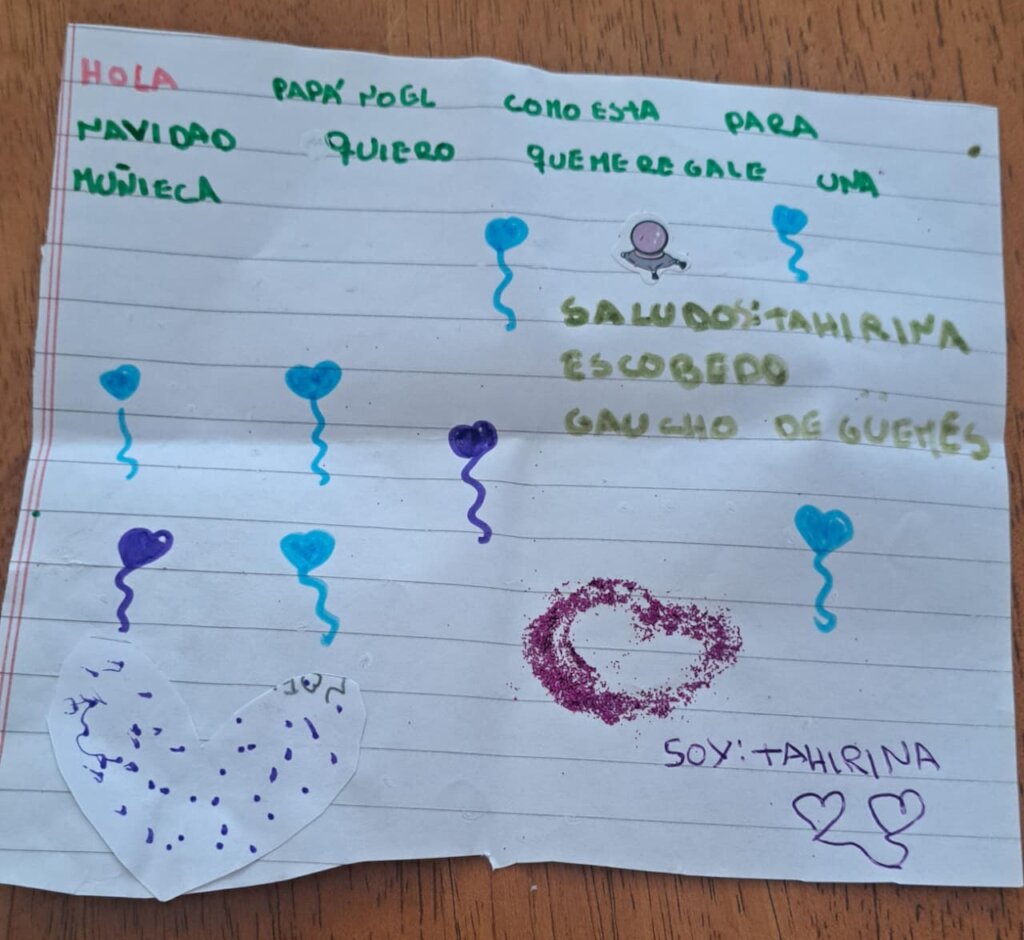 HOLA PAPÁ NOEL COMO ESTA PARA
NAVIDAD QUIERO QUEMEREGALE UNA
MUÑIECA
SALUDOS: TAHIRINA
ESCOBEDO
GAUCHO DE GÜEMES
SOY: TAHIRINA